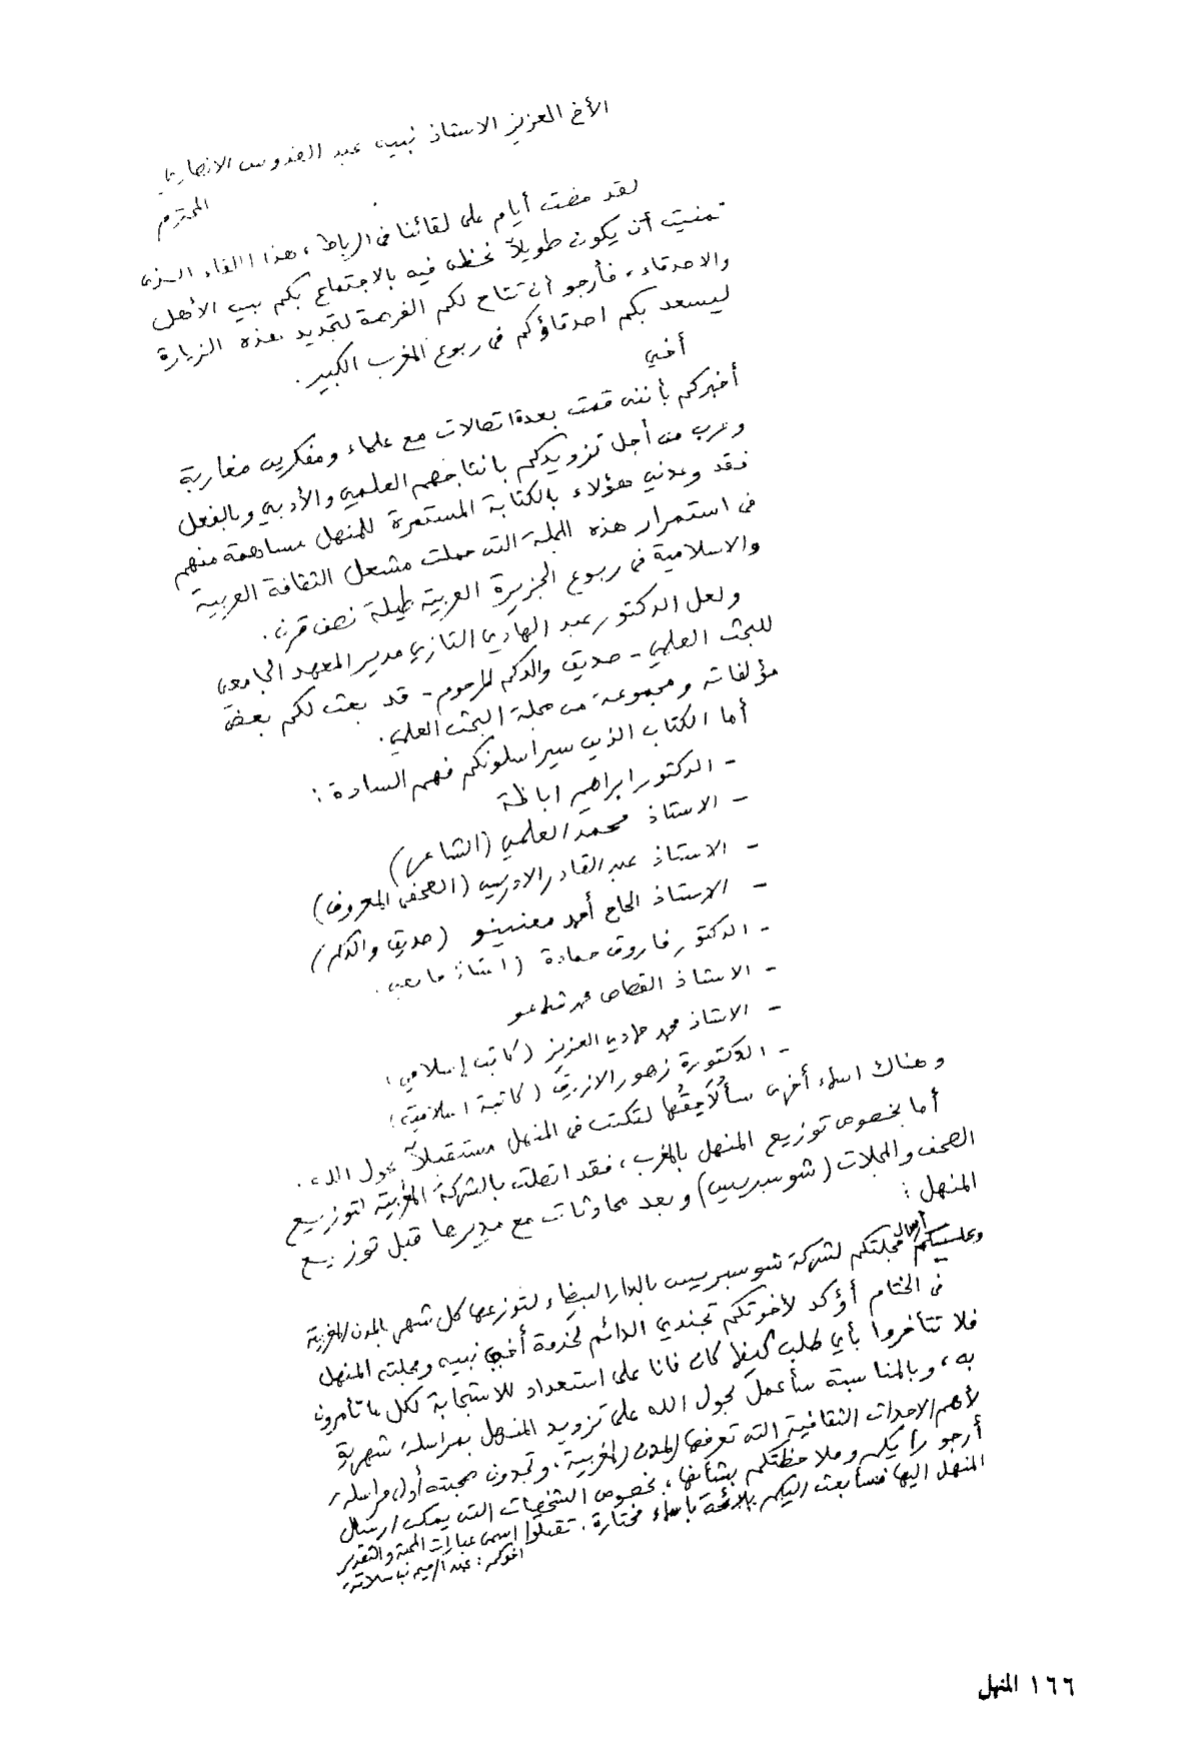 الأخ العزيز الاستاذ نبيه عبد القدوس الانصاري
المحترم
لقد مضت أيام على لقائنا فى الرباط، هذا اللقاء الذى
تمنيت أن يكون طويلاً نحظى فيه بالاجتماع بكم بين الأهل
والاصدقاء، فأرجو أن تتاح لكم الفرصة لتجديد هذه الزيارة
ليسعد بكم اصدقاؤكم فى ربوع المغرب الكبير.
أخي
أخبركم بأننى قمت بعدة اتصالات مع علماء ومفكرين مغاربة
وعرب من أجل تزويدكم بانتاجهم العلمي والأدبي وبالفعل
فقد وعدني هؤلاء بالكتابة المستمرة للمنهل مساهمة منهم
فى استمرار هذه المجلة التى حملت مشعل الثقافة العربية
والاسلامية فى ربوع الجزيرة العربية طيلة نصف قرن.
ولعل الدكتور عبد الهادي التازي مدير المعهد الجامعي
للبحث العلمي - صديق والدكم المرحوم - قد بعث لكم بعض
مؤلفاته ومجموعة من مجلة البحث العلمي.
أما الكتاب الذين سيراسلونكم فهم السادة:
- الدكتور ابراهيم اباظة
- الاستاذ محمد العلمي (الشاعر)
- الاستاذ عبد القادر الادريسي (الصحفى المعروف)
- الاستاذ الحاج أحمد معنينو (صديق والدكم)
- الدكتور فاروق حمادة (استاذ جامعي.
- الاستاذ القصاص محمد
- الاستاذ محمد حمادي العزيز (كاتب إسلامي)
- الدكتورة زهور الازرق (كاتبة اسلامية)
وهناك اسماء أخرى سألاحقها لتكتب فى المنهل مستقبلاً بحول الله.
أما بخصوص توزيع المنهل بالمغرب، فقد اتصلت بالشركة المغربية لتوزيع
الصحف والمجلات (شوسبريس) وبعد محادثات مع مديرها قبل توزيع
المنهل:
وعليكم ارسال مجلتكم لشركة شوسبريس بالدار البيضاء لتوزعها كل شهر بالمدن المغربية
فى الختام أؤكد لأخوتكم تجندي الدائم لخدمة أخي نبيه ومجلته المنهل
فلا تتأخروا بأي طلب كيفما كان فانا على استعداد للاستجابة لكل ما تأمرون
به، وبالمناسبة سأعمل بحول الله على تزويد المنهل بمراسلة شهرية
لأهم الاحداث الثقافية التى تعرفها المدن المغربية، وتجدون صحبته أول مراسلة،
أرجو رأيكم وملاحظتكم بشأنها، بخصوص الشخصيات التى يمكن ارسال
المنهل اليها فسأبعث اليكم بلائحة باسماء مختارة. تقبلوا اسمى عبارات المحبة والتقدير
اخوكم: عبد الرحيم بن سلامة
١٦٦ المنهل